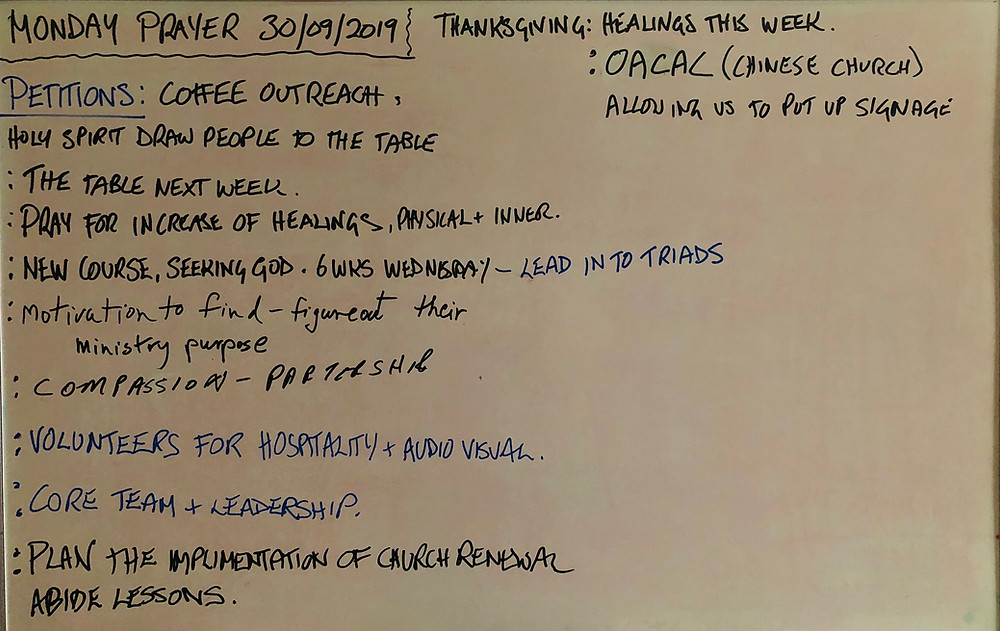 MONDAY PRAYER 30/09/2019
THANKSGIVING: HEALINGS THIS WEEK.
: OACAL (CHINESE CHURCH)
ALLOWING US TO PUT UP SIGNAGE
PETITIONS: COFFEE OUTREACH,
HOLY SPIRIT DRAW PEOPLE TO THE TABLE
: THE TABLE NEXT WEEK.
: PRAY FOR INCREASE OF HEALINGS, PHYSICAL + INNER.
: NEW COURSE, SEEKING GOD. 6 WKS WEDNESDAY - LEAD INTO TRIADS
: Motivation to find - figureout their
ministry purpose
: COMPASSION - PARTERSHIP
: VOLUNTEERS FOR HOSPITALITY + AUDIO VISUAL.
: CORE TEAM + LEADERSHIP.
: PLAN THE IMPLIMENTATION OF CHURCH RENEWAL
ABIDE LESSONS.